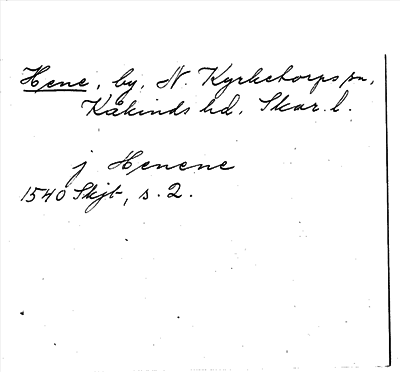 Hene, by, N. Kyrketorps sn,
Kåkinds hd, Skar. l.
j Henene
1540 Skjt, s. 2.